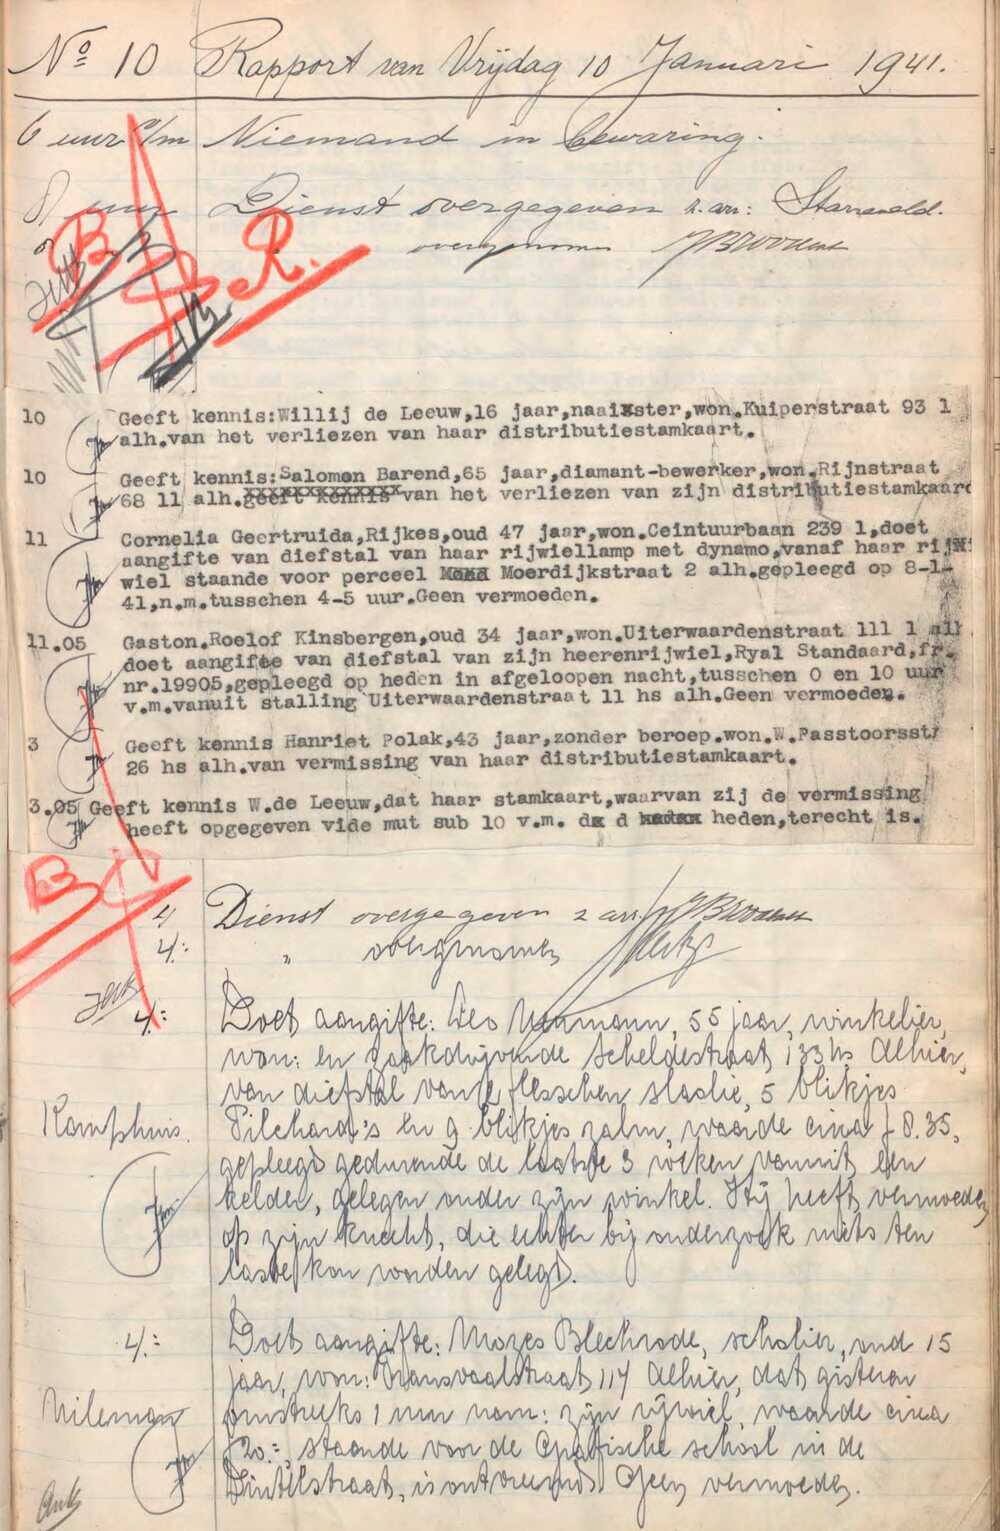 No 10 Rapport van Vrijdag 10 Januari 1941.
6 uur v/m Niemand in bewaring.
8 uur Dienst overgegeven
overgenomen
B R.
10 Geeft kennis:Willij de Leeuw,16 jaar,naaixster,won.Kuiperstraat 93 1
alh.van het verliezen van haar distributiestamkaart.
10 Geeft kennis:Salomon Barend,65 jaar,diamant-bewerker,won.Rijnstraat
68 11 alh.geeft kennis van het verliezen van zijn distributiestamkaard
11 Cornelia Geertruida,Rijkes,oud 47 jaar,won.Ceintuurbaan 239 1,doet
aangifte van diefstal van haar rijwiellamp met dynamo,vanaf haar rij
wiel staande voor perceel Moerdijkstraat 2 alh.gepleegd op 8-1-
41,n.m.tusschen 4-5 uur.Geen vermoeden.
11.05 Gaston.Roelof Kinsbergen,oud 34 jaar,won.Uiterwaardenstraat 111 1 alh
doet aangifte van diefstal van zijn heerenrijwiel,Ryal Standaard,fr.
nr.19905,gepleegd op heden in afgeloopen nacht,tusschen 0 en 10 uur
v.m.vanuit stalling Uiterwaardenstraat 11 hs alh.Geen vermoeden.
3 Geeft kennis Hanriet Polak,43 jaar,zonder beroep.won.W.Passtoorsstr
26 hs alh.van vermissing van haar distributiestamkaart.
3.05 Geeft kennis W.de Leeuw,dat haar stamkaart,waarvan zij de vermissing
heeft opgegeven vide mut sub 10 v.m. dx d heden,terecht is.
B
4 Dienst overgegeven
4: " overgenomen
4: Doet aangifte: Leo 55 jaar, winkelier,
won: en zaakdrijvende Scheldestraat 133 hs Alhier,
van diefstal van 2 flesschen slaolie, 5 blikjes
Pilchard's en 9 blikjes zalm, waarde circa f 8.35,
gepleegd gedurende de laatste 3 weken vanuit een
kelder, gelegen onder zijn winkel. Hij heeft vermoeden
op zijn knecht, die echter bij onderzoek niets ten
laste kon worden gelegd.
Kamphuis.
4: Doet aangifte: Mozes Blechrode, scholier, oud 15
jaar, won: Transvaalstraat 117 Alhier, dat gisteren
omstreeks 1 uur nam: zijn rijwiel, waarde circa
f 20.=, staande voor de school in de
Dintelstraat, is ontvreemd. Geen vermoeden.